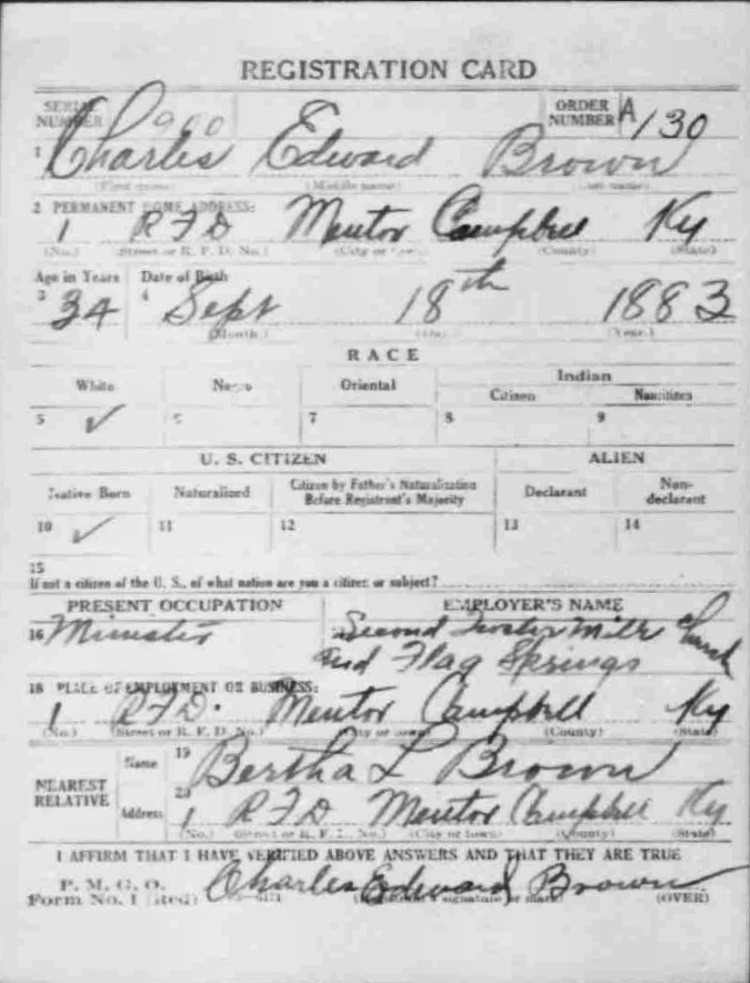 REGISTRATION CARD
SERIAL NUMBER 900 ORDER NUMBER A 130
1 Charles Edward Brown
(First name) (Middle name) (Last name)
2 PERMANENT HOME ADDRESS:
1 RFD Mentor Campbell Ky
(No.) (Street or R. F. D. No.) (City or town) (County) (State)
Age in Years Date of Birth
3 34 4 Sept 18th 1883
(Month.) (Day.) (Year.)
RACE
White Negro Oriental Indian
Citizen Noncitizen
5 ✓ 6 7 8 9
U. S. CITIZEN ALIEN
Native Born Naturalized Citizen by Father's Naturalization Before Registrant's Majority Declarant Non-declarant
10 ✓ 11 12 13 14
15
If not a citizen of the U. S., of what nation are you a citizen or subject?
PRESENT OCCUPATION EMPLOYER'S NAME
16 Minister Second Mile Church
and Flag Springs
18 PLACE OF EMPLOYMENT OR BUSINESS:
1 RFD. Mentor Campbell Ky
(No.) (Street or R. F. D. No.) (City or town) (County) (State)
NEAREST RELATIVE
Name 19 Bertha L Brown
Address 20 1 RFD Mentor Campbell Ky
(No.) (Street or R. F. D. No.) (City or town) (County) (State)
I AFFIRM THAT I HAVE VERIFIED ABOVE ANSWERS AND THAT THEY ARE TRUE
P. M. G. O.
Form No. 1 (Red) Charles Edward Brown
(Registrant's signature or mark) (OVER)